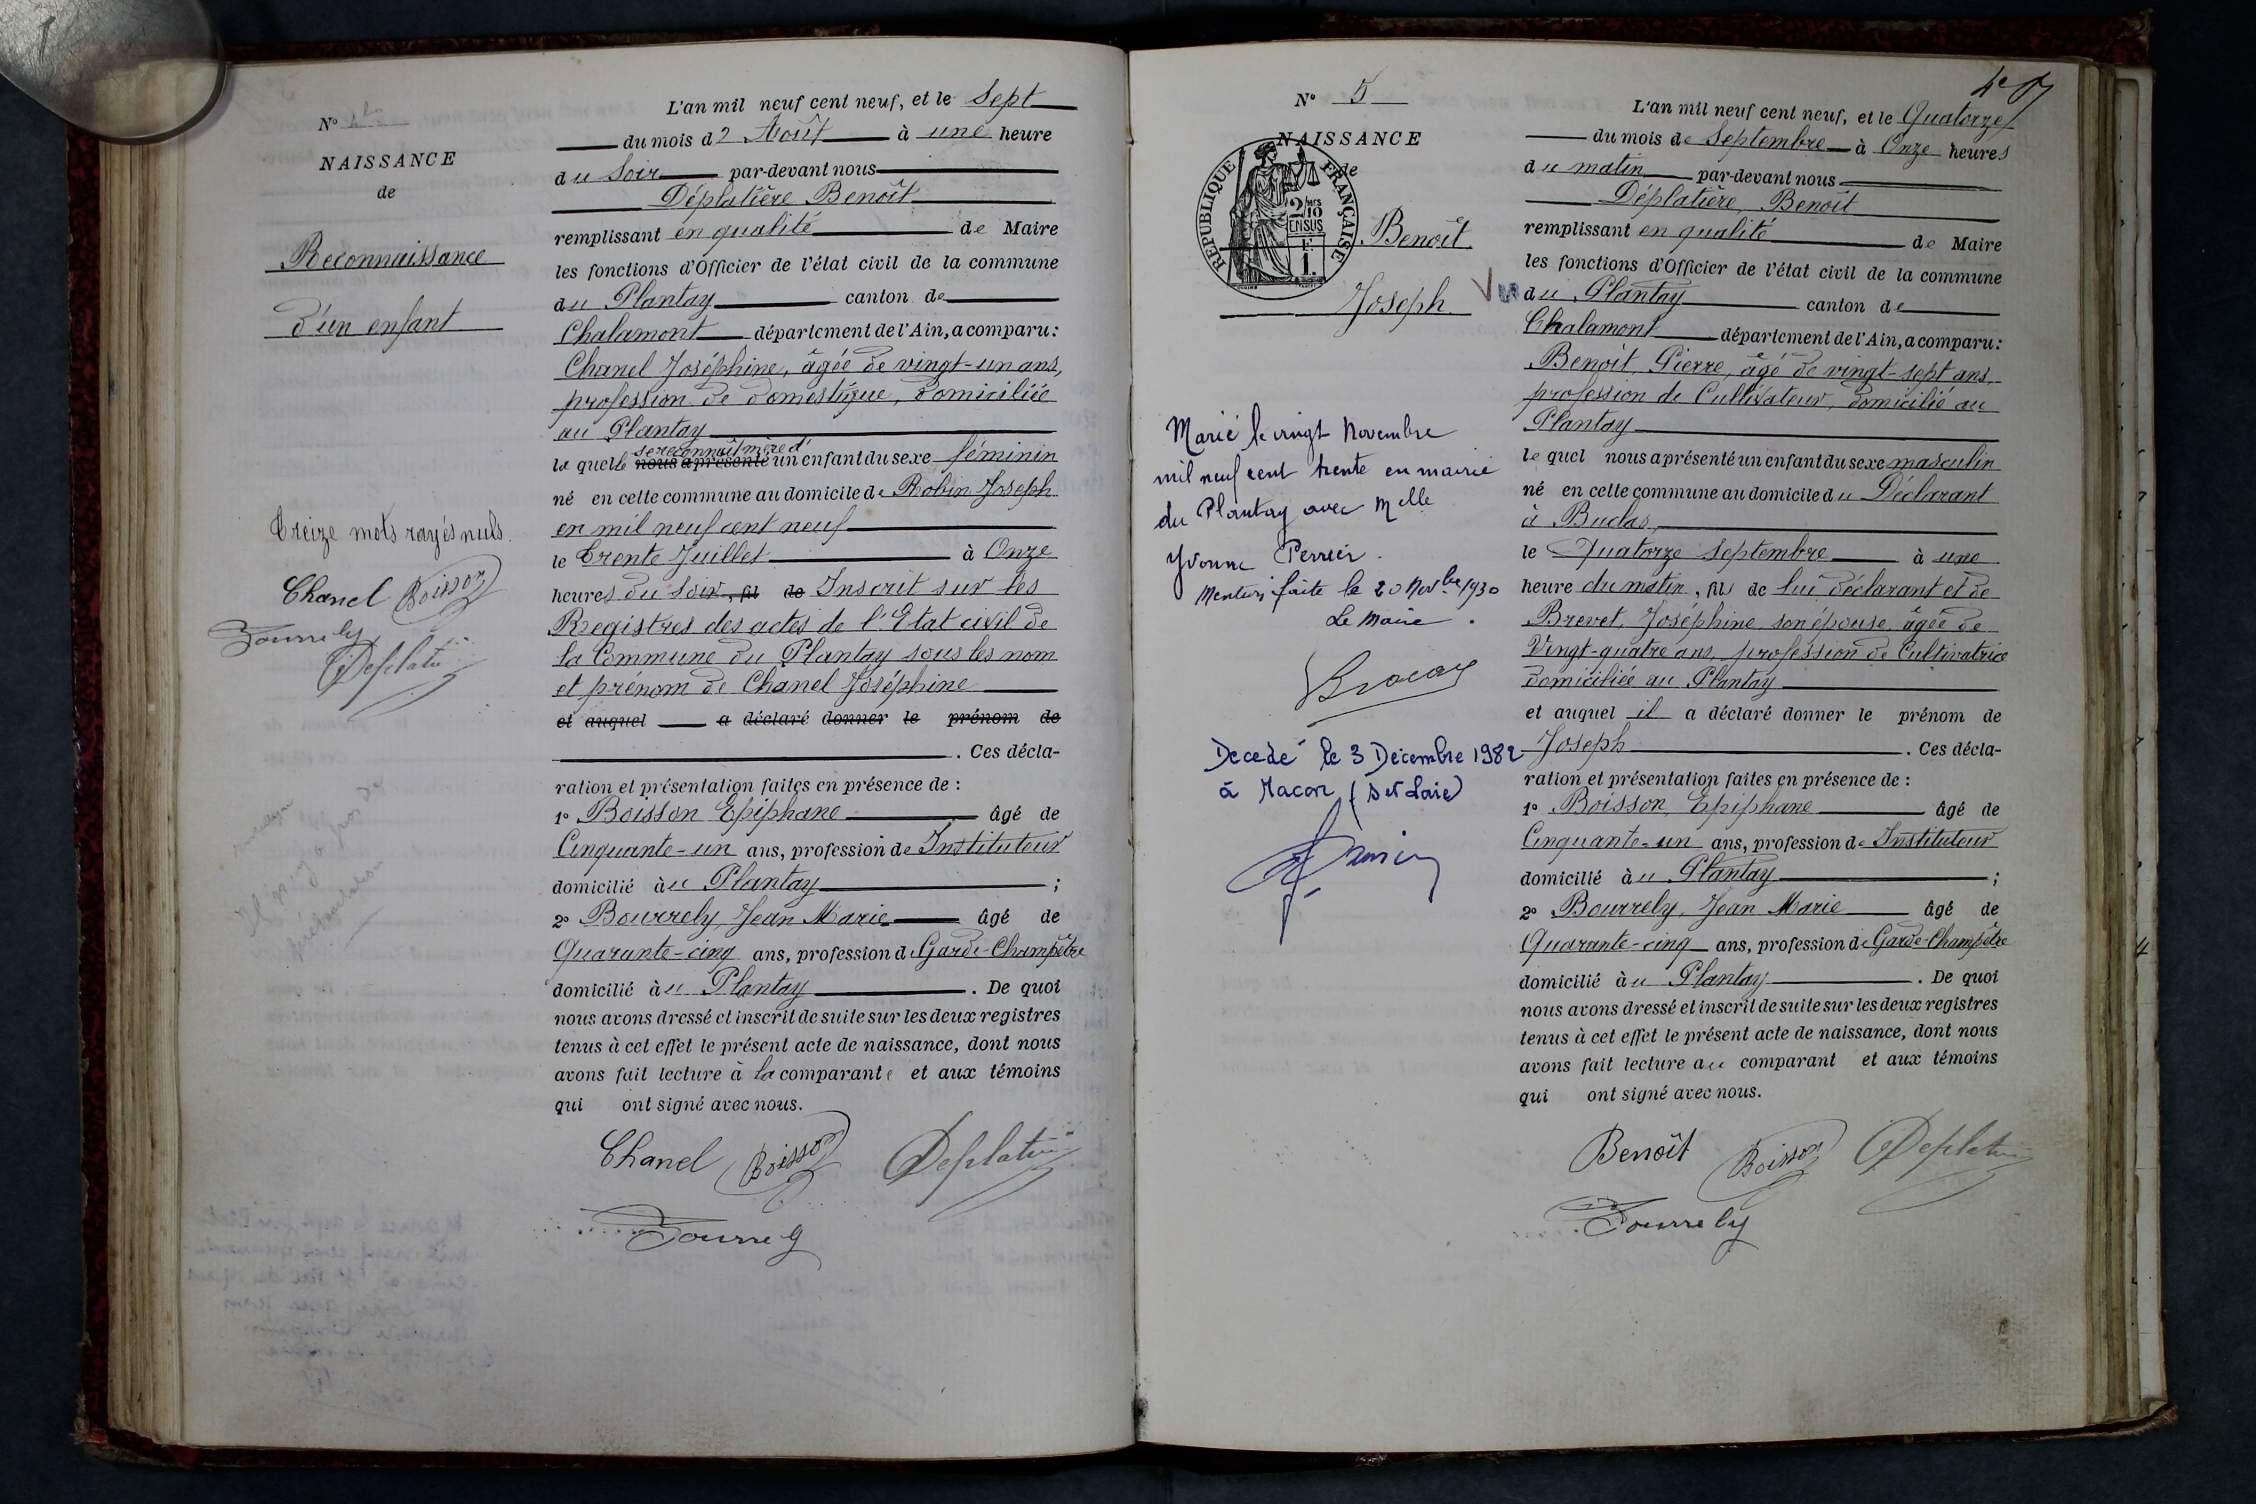 N°
NAISSANCE
de
Reconnaissance
d'un enfant
Treize mots rayés nuls.
Chanel Boisson
Bourrely
Déplatière
L'an mil neuf cent neuf, et le Sept
du mois de Août à une heure
du Soir par-devant nous
Déplatière Benoît
remplissant en qualité de Maire
les fonctions d'Officier de l'état civil de la commune
du Plantay canton de
Chalamont département de l'Ain, a comparu:
Chanel Joséphine, âgée de vingt-un ans,
profession de domestique, domiciliée
au Plantay
se reconnaît mère d'
la quelle nous a présenté un enfant du sexe féminin
né en cette commune au domicile de Robin Joseph
en mil neuf cent neuf
le Trente Juillet à Onze
heures du soir, fil de Inscrit sur les
Registres des actes de l'Etat civil de
la Commune du Plantay sous les nom
et prénom de Chanel Joséphine
et auquel a déclaré donner le prénom de
. Ces décla-
ration et présentation faites en présence de :
1° Boisson Epiphane âgé de
Cinquante-un ans, profession de Instituteur
domicilié au Plantay ;
2° Bourrely, Jean Marie âgé de
Quarante-cinq ans, profession de Garde-Champêtre
domicilié au Plantay . De quoi
nous avons dressé et inscrit de suite sur les deux registres
tenus à cet effet le présent acte de naissance, dont nous
avons fait lecture à la comparante et aux témoins
qui ont signé avec nous.
Chanel Boisson Déplatière
Bourrely
N° 5
NAISSANCE
de
REPUBLIQUE FRANÇAISE
2/10 EN SUS
Benoît
Joseph
Vu
Marié le vingt Novembre
mil neuf cent trente en mairie
du Plantay avec Melle
Yvonne Perrier.
Mention faite le 20 Novbre 1930
Le Maire.
Decedé le 3 Decembre 1982
à Macon (S et Loire)
L'an mil neuf cent neuf, et le Quatorze
du mois de Septembre à Onze heures
du matin par-devant nous
Déplatière, Benoît
remplissant en qualité de Maire
les fonctions d'Officier de l'état civil de la commune
du Plantay canton de
Chalamont département de l'Ain, a comparu:
Benoît, Pierre, âgé de vingt-sept ans,
profession de Cultivateur, domicilié au
Plantay
le quel nous a présenté un enfant du sexe masculin
né en cette commune au domicile du Déclarant
à Buclas,
le Quatorze Septembre à une
heure du matin, fils de lui déclarant et de
Brevet, Joséphine son épouse, âgée de
Vingt-quatre ans, profession de Cultivatrice
domiciliée au Plantay
et auquel il a déclaré donner le prénom de
Joseph . Ces décla-
ration et présentation faites en présence de :
1° Boisson, Epiphane âgé de
Cinquante-un ans, profession de Instituteur
domicilié au Plantay ;
2° Bourrely, Jean Marie âgé de
Quarante-cinq ans, profession de Garde-Champêtre
domicilié au Plantay . De quoi
nous avons dressé et inscrit de suite sur les deux registres
tenus à cet effet le présent acte de naissance, dont nous
avons fait lecture au comparant et aux témoins
qui ont signé avec nous.
Benoît Boisson Déplatière
Bourrely